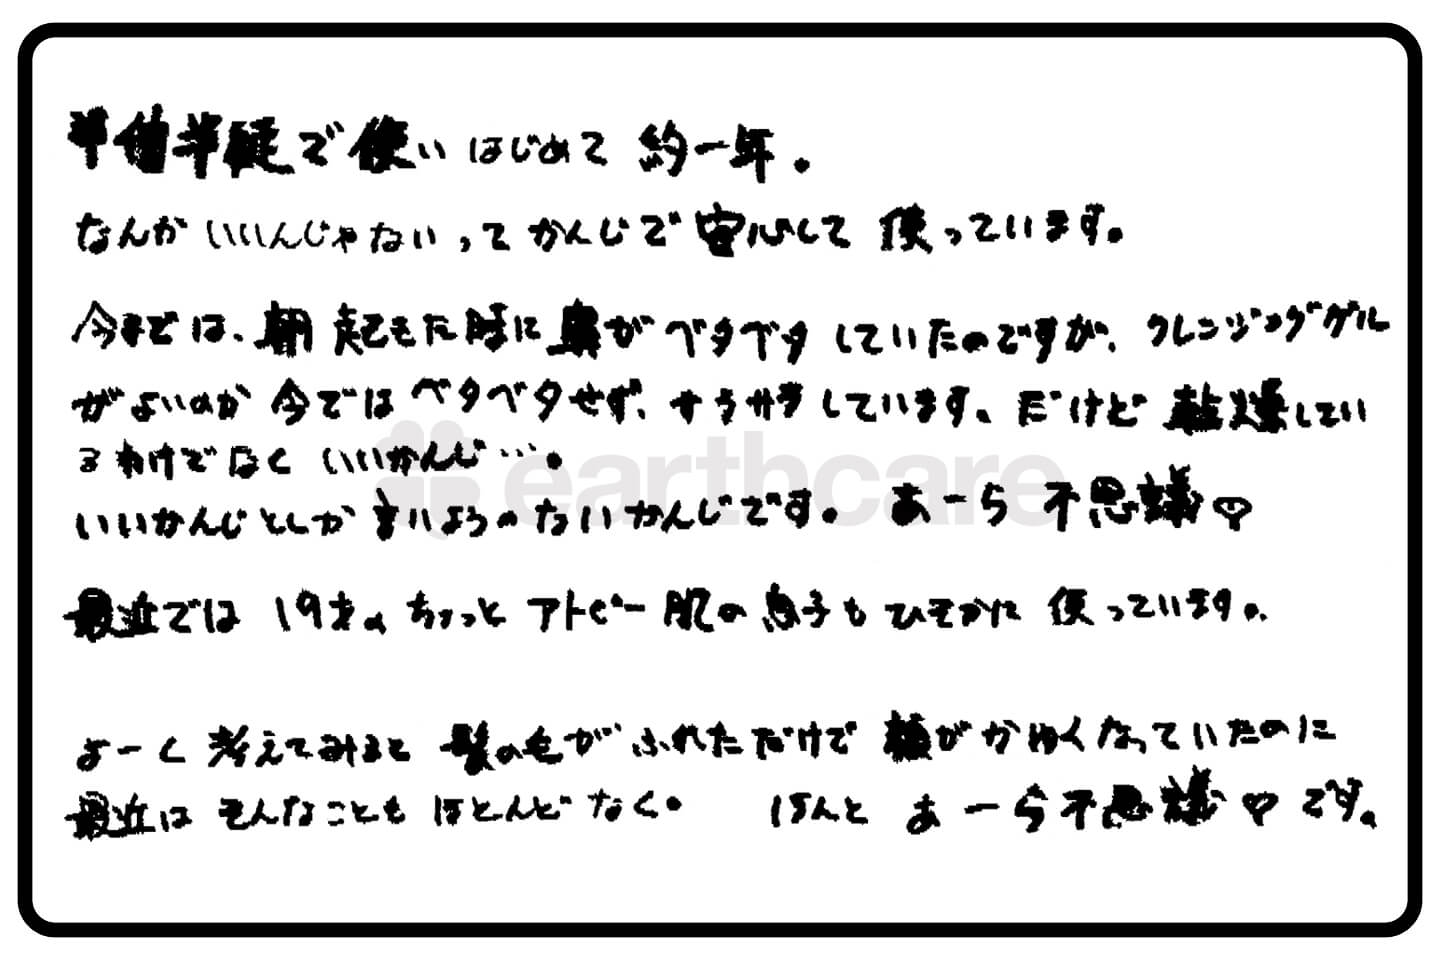 半信半疑で使いはじめて約一年。
なんかいいんじゃないってかんじで安心して使っています。
今までは、朝起きた時に鼻がベタベタしていたのですが、クレンジングゲル
がよいのか今ではベタベタせず、サラサラしています。だけど乾燥してい
るわけでなくいいかんじ…。
earthcare
いいかんじとしか言いようのないかんじです。あーら不思議♡
最近では19才のちょっとアトピー肌の息子もひそかに使っています。
よーく考えてみると髪の毛がふれただけで頬がかゆくなっていたのに
最近はそんなこともほとんどなく。ほんとあーら不思議♡です。